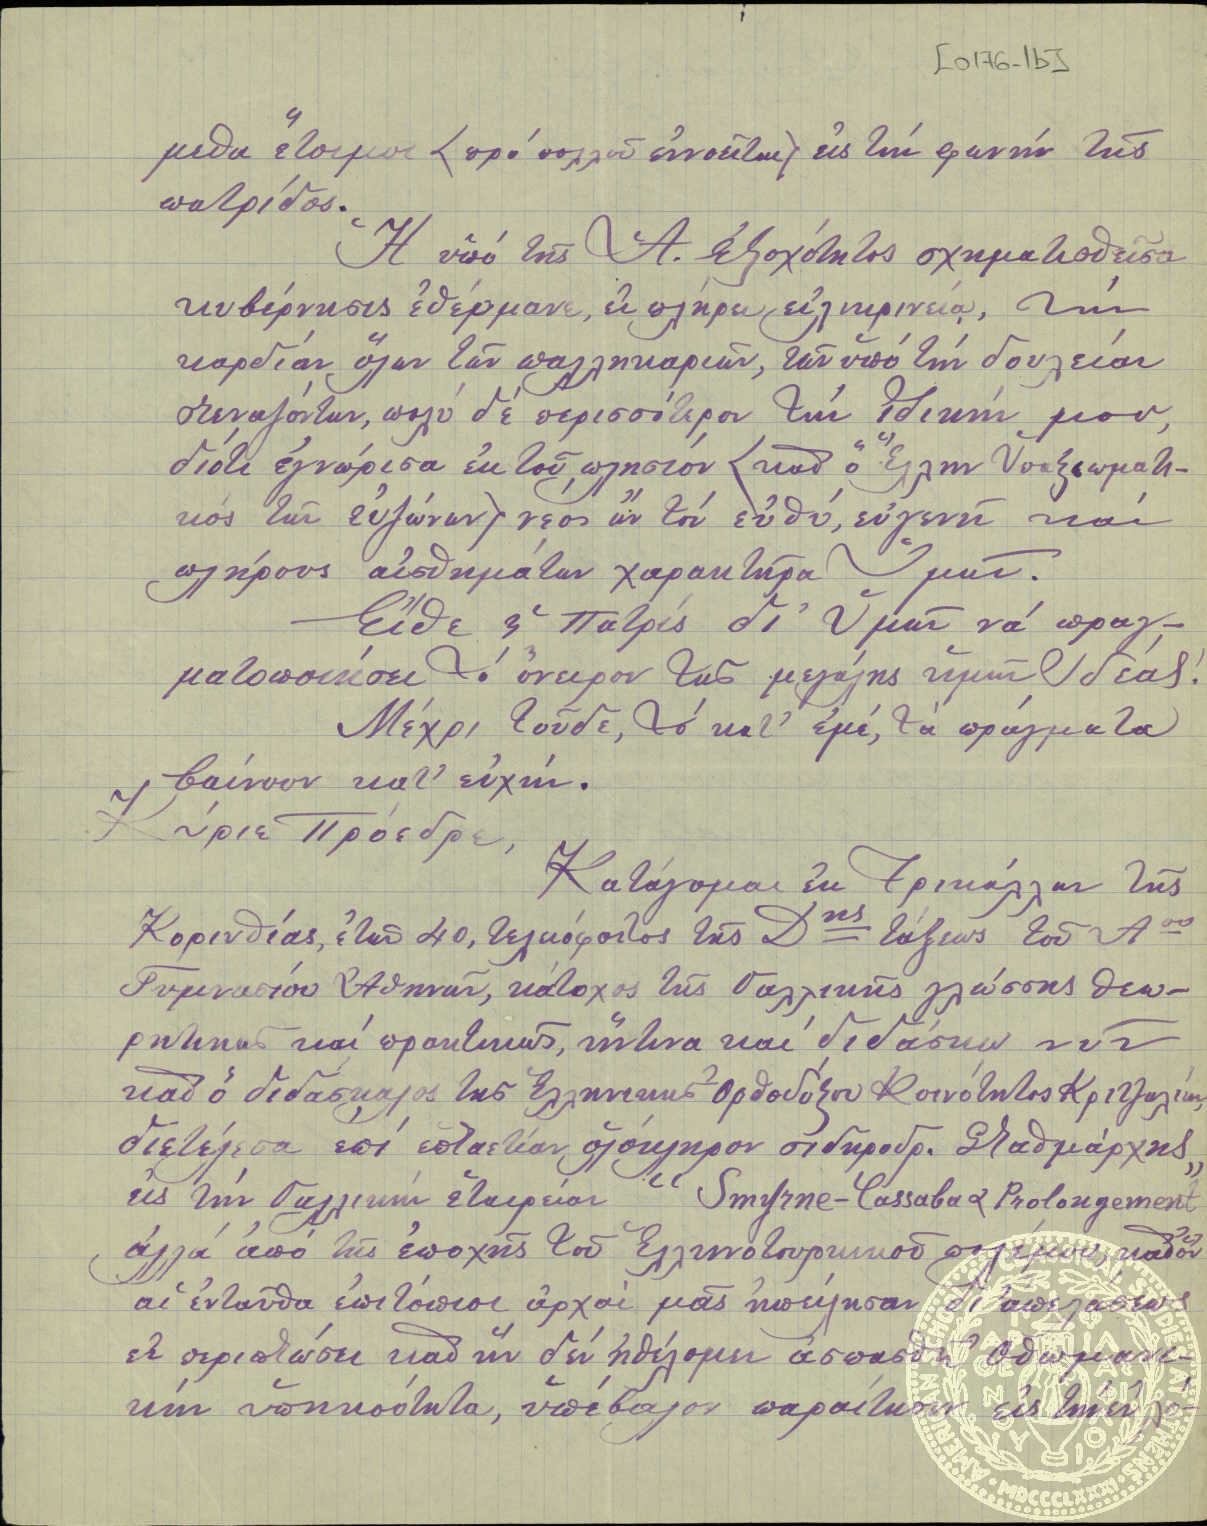 [0176-1b]
μεθα ἕτοιμοι (πρό πολλοῦ ἐννοεῖται) εἰς τήν φωνήν τῆς
πατρίδος.
Ἡ ὑπό τῆς Ὑ. Α. Ἐξοχότητος σχηματισθεῖσα
κυβέρνησις ἐθέρμανε, ἐν πλήρει εἰλικρινείᾳ, τήν
καρδίαν ὅλων τῶν παλληκαριῶν, τῶν ὑπό τήν δουλείαν
στεναζόντων, πολύ δέ περισσότερον τήν ἰδικήν μου,
διότι ἐγνώρισα ἐκ τοῦ πλησίον (καθ' ὅ Ἕλλην Ὑπαξιωματι-
κός τῶν εὐζώνων) νέος ὤν τόν εὐθύ, εὐγενῆ καί
πλήρους αἰσθημάτων χαρακτῆρα Ὑμῶν.
Εἴθε ἡ Πατρίς δι' Ὑμῶν νά πραγ-
ματοποιήσει τό ὄνειρον τῆς μεγάλης ἡμῶν Ἰδέας!
Μέχρι τοῦδε, τό κατ' ἐμέ, τά πράγματα
βαίνουν κατ' εὐχήν.
Κύριε Πρόεδρε,
Κατάγομαι ἐκ Τρικάλλων τῆς
Κορινθίας, ἐτῶν 40, τελειόφοιτος τῆς Δης τάξεως τοῦ Αου
Γυμνασίου Ἀθηνῶν, κάτοχος τῆς Γαλλικῆς γλώσσης θεω-
ρητικῶς καί πρακτικῶς, ἥντινα καί διδάσκω νῦν
καθ' ὅ διδάσκαλος τῆς Ἑλληνικῆς Ὀρθοδόξου Κοινότητος
διετέλεσα ἐπί ἑπταετίαν ὁλόκληρον σιδηροδρ. Σταθμάρχης
εἰς τήν Γαλλικήν ἑταιρείαν "Smyrne-Cassaba & Prolongement"
ἀλλά ἀπό τῆς ἐποχῆς τοῦ Ἑλληνοτουρκικοῦ πολέμου, καθ' ὅν
αἱ ἐνταῦθα ἐπιτόπιοι ἀρχαί μᾶς ἠπείλησαν δι' ἀπελάσεως
ἐν περιπτώσει καθ' ἥν δέν ἠθέλομεν ἀσπασθῆ Ὀθωμανι-
κήν ὑπηκοότητα, ὑπέβαλον παραίτησιν εἰς τήν ἐν λό-
AMERICAN SCHOOL OF CLASSICAL STUDIES AT ATHENS · MDCCCLXXXI ·